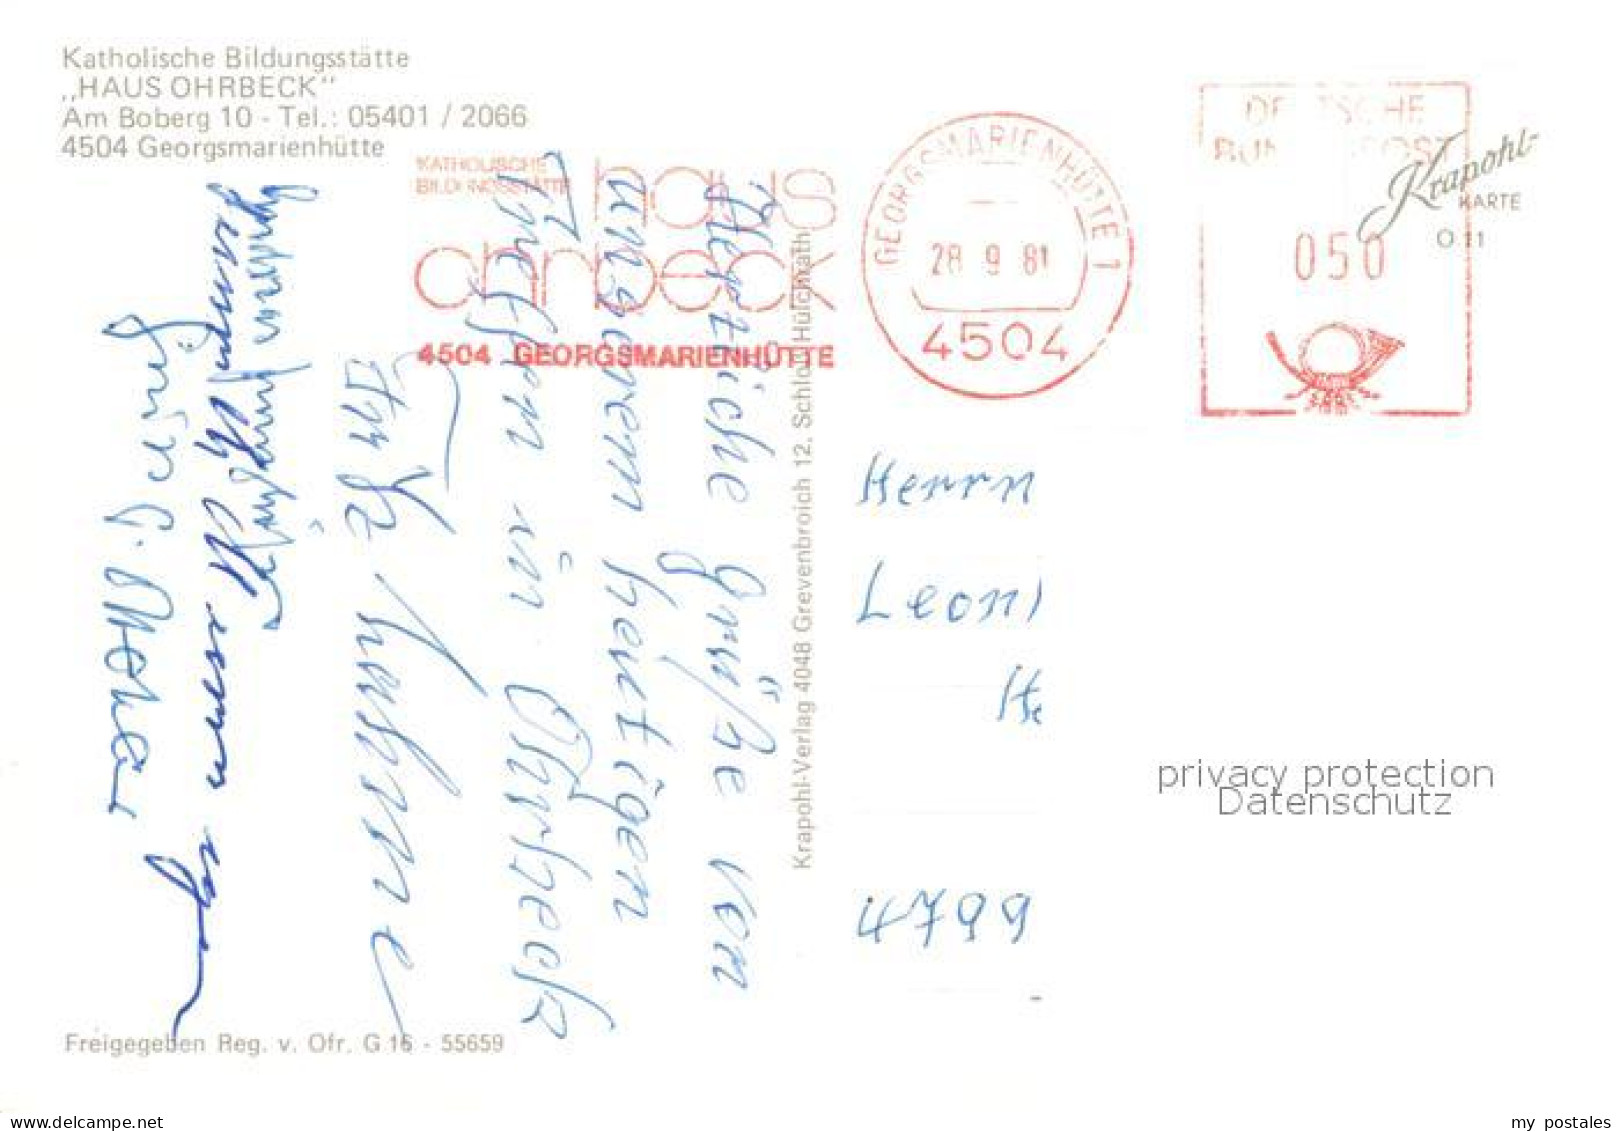 Katholische Bildungsstätte
„HAUS OHRBECK"
Am Boberg 10 - Tel.: 05401 / 2066
4504 Georgsmarienhütte
KATHOLISCHE
BILDUNGSSTÄTTE
haus
ohrbeck
4504 GEORGSMARIENHÜTTE
GEORGSMARIENHÜTTE 1
28 9 81
4504
DEUTSCHE
BUNDESPOST
050
Krapohl-
KARTE
O 11
Herzliche Grüße von
unserem heutigen
Treffen in Ohrbeck
Krapohl-Verlag 4048 Grevenbroich 12, Schloß Hülchrath
Herrn
Leon
He
4799
privacy protection
Datenschutz
Freigegeben Reg. v. Ofr. G 16 - 55659
my postales